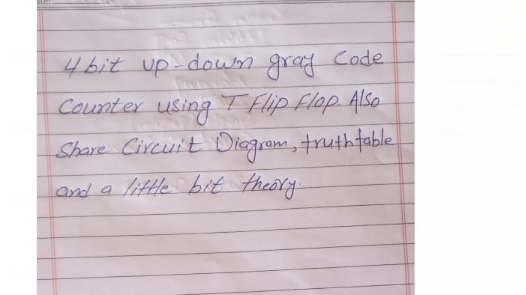 4 bit up-down gray Code
Counter using T Flip Flop. Also
Share Circuit Diagram, truthtable
and a little bit theory.